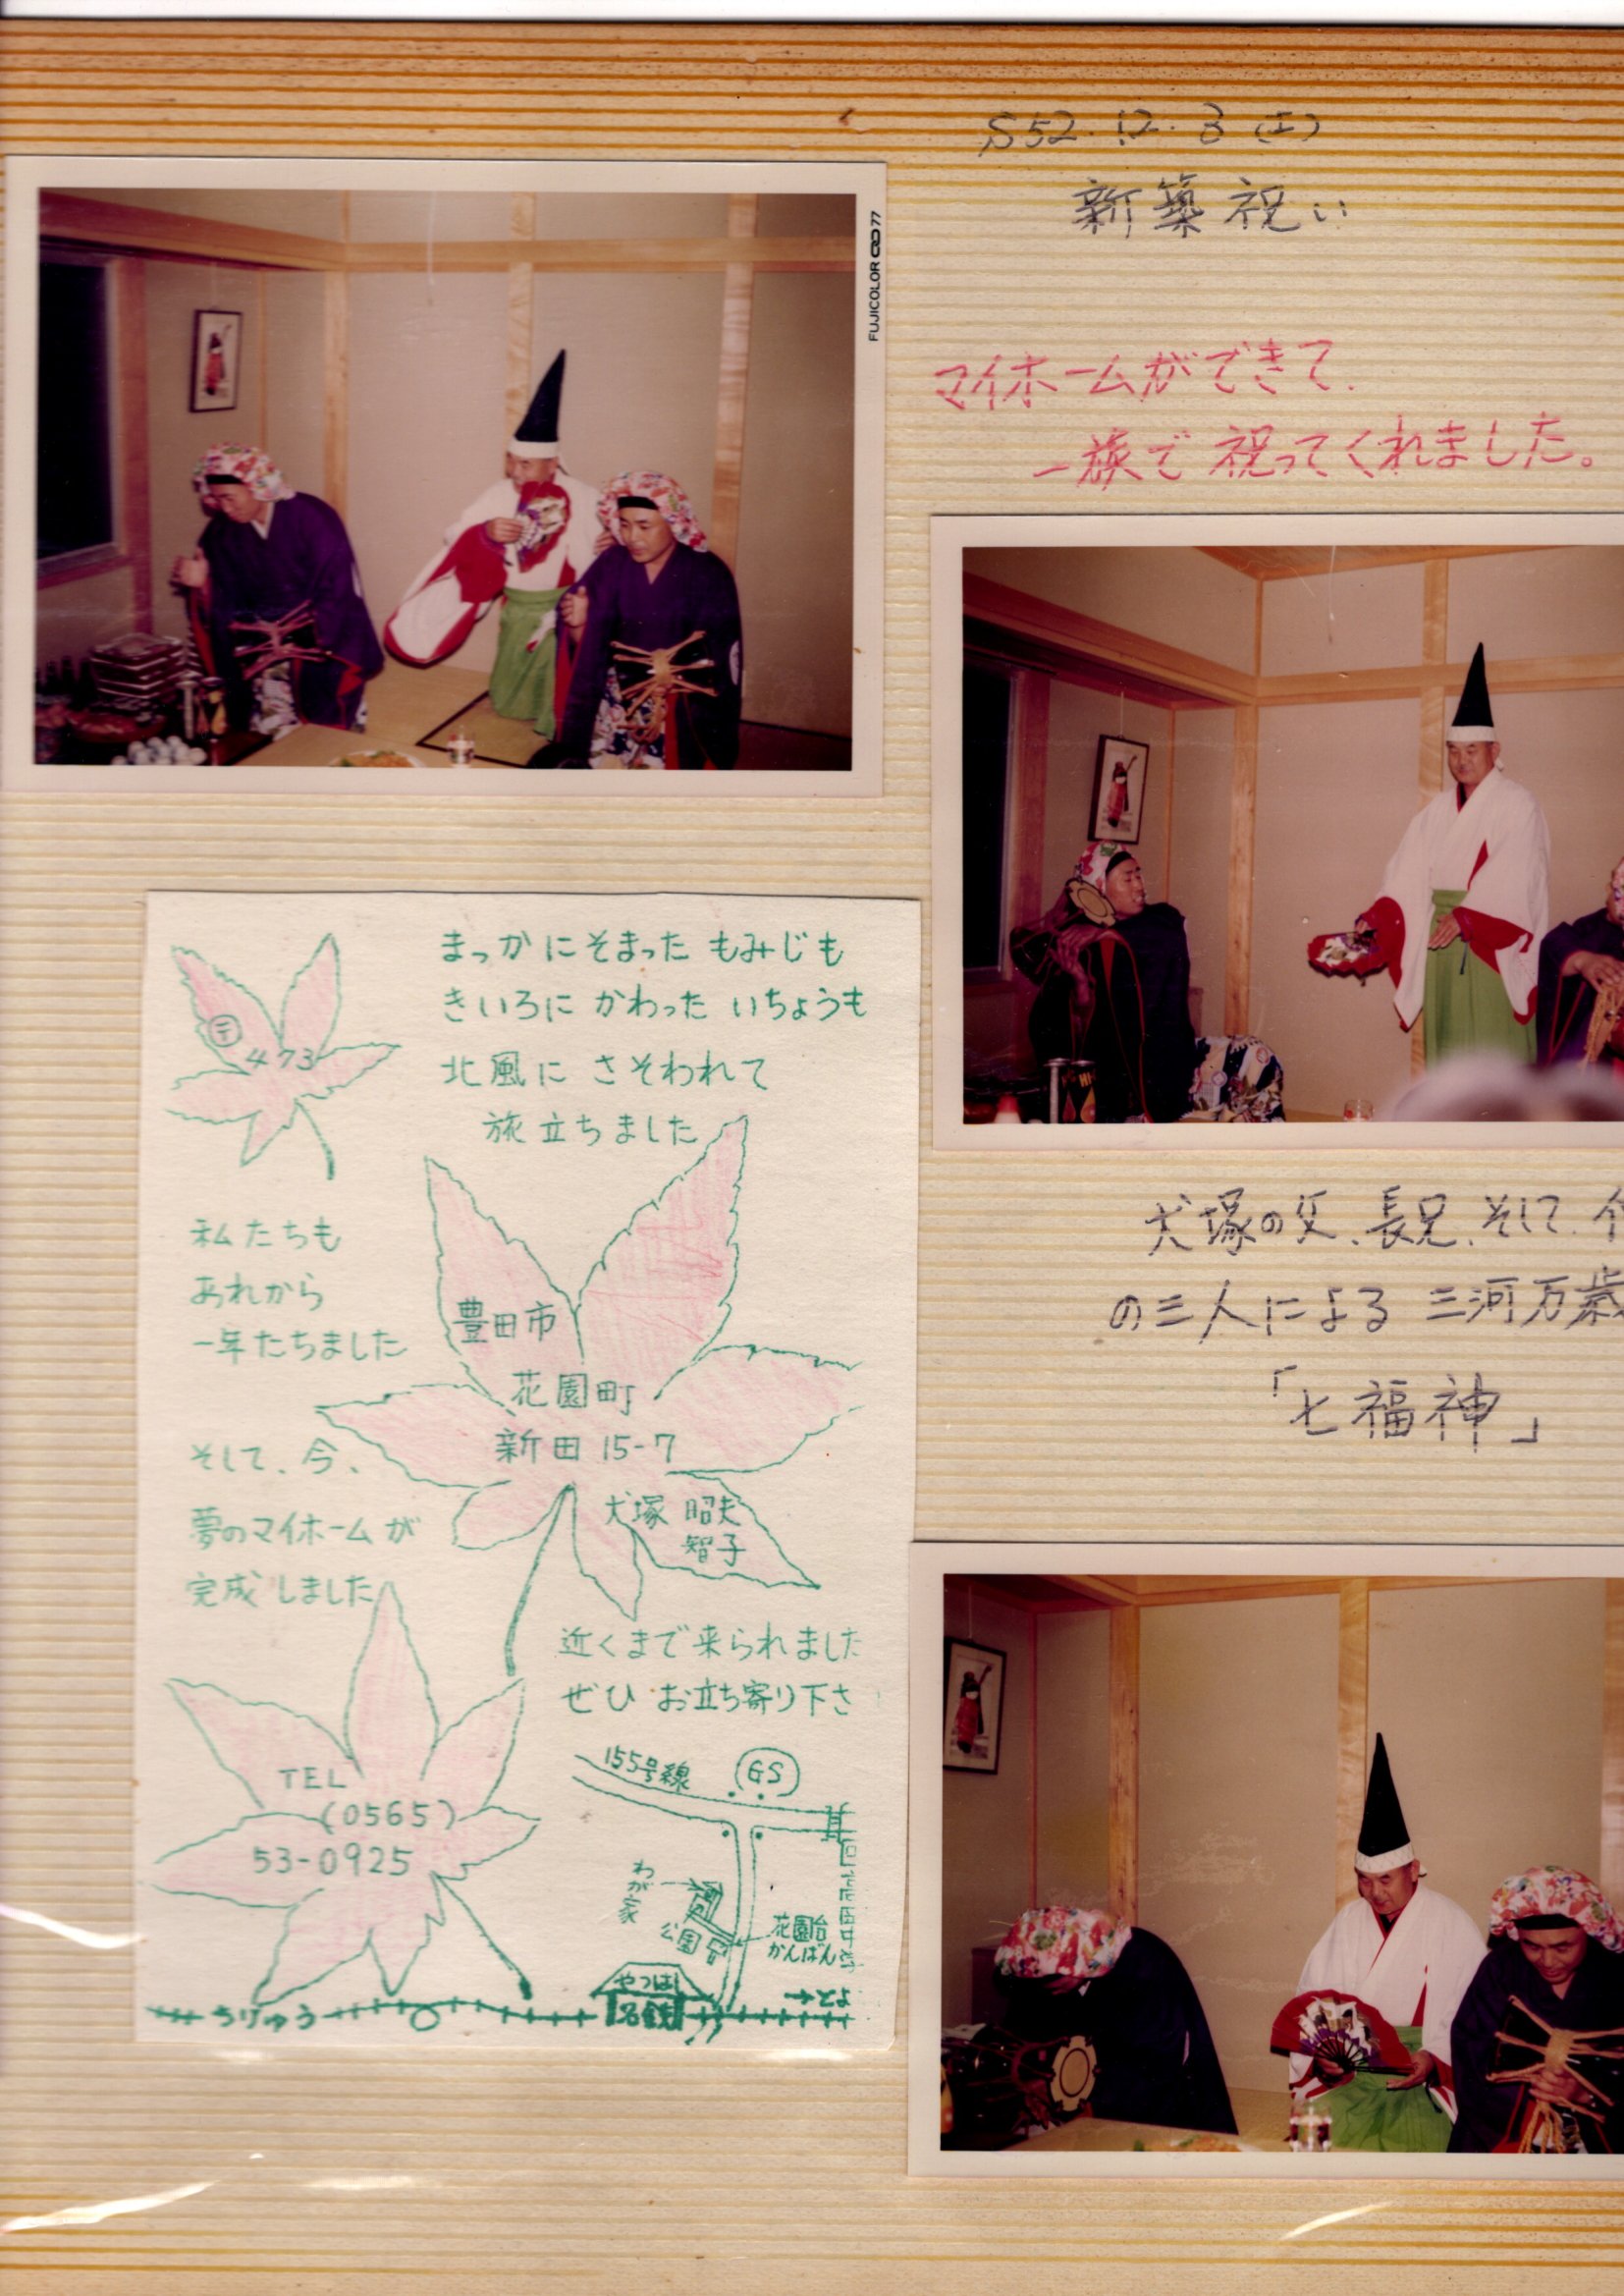 S52.12.3(土)
新築祝い
マイホームができて、
一族で祝ってくれました。
FUJICOLOR 77
犬塚の父、長兄、そして
の三人による 三河万歳
「七福神」
まっかにそまった もみじも
きいろに かわった いちょうも
北風に さそわれて
旅立ちました
〒
473
私たちも
あれから
一年たちました
そして、今、
夢のマイホームが
完成しました
豊田市
花園町
新田 15-7
犬塚 昭夫
智子
近くまで来られました
ぜひ お立ち寄り下さ
TEL
(0565)
53-0925
155号線
GS
わが家
公園
花園台
かんばん
高田中学
やつはし
名鉄
ちりゅう
→とよ